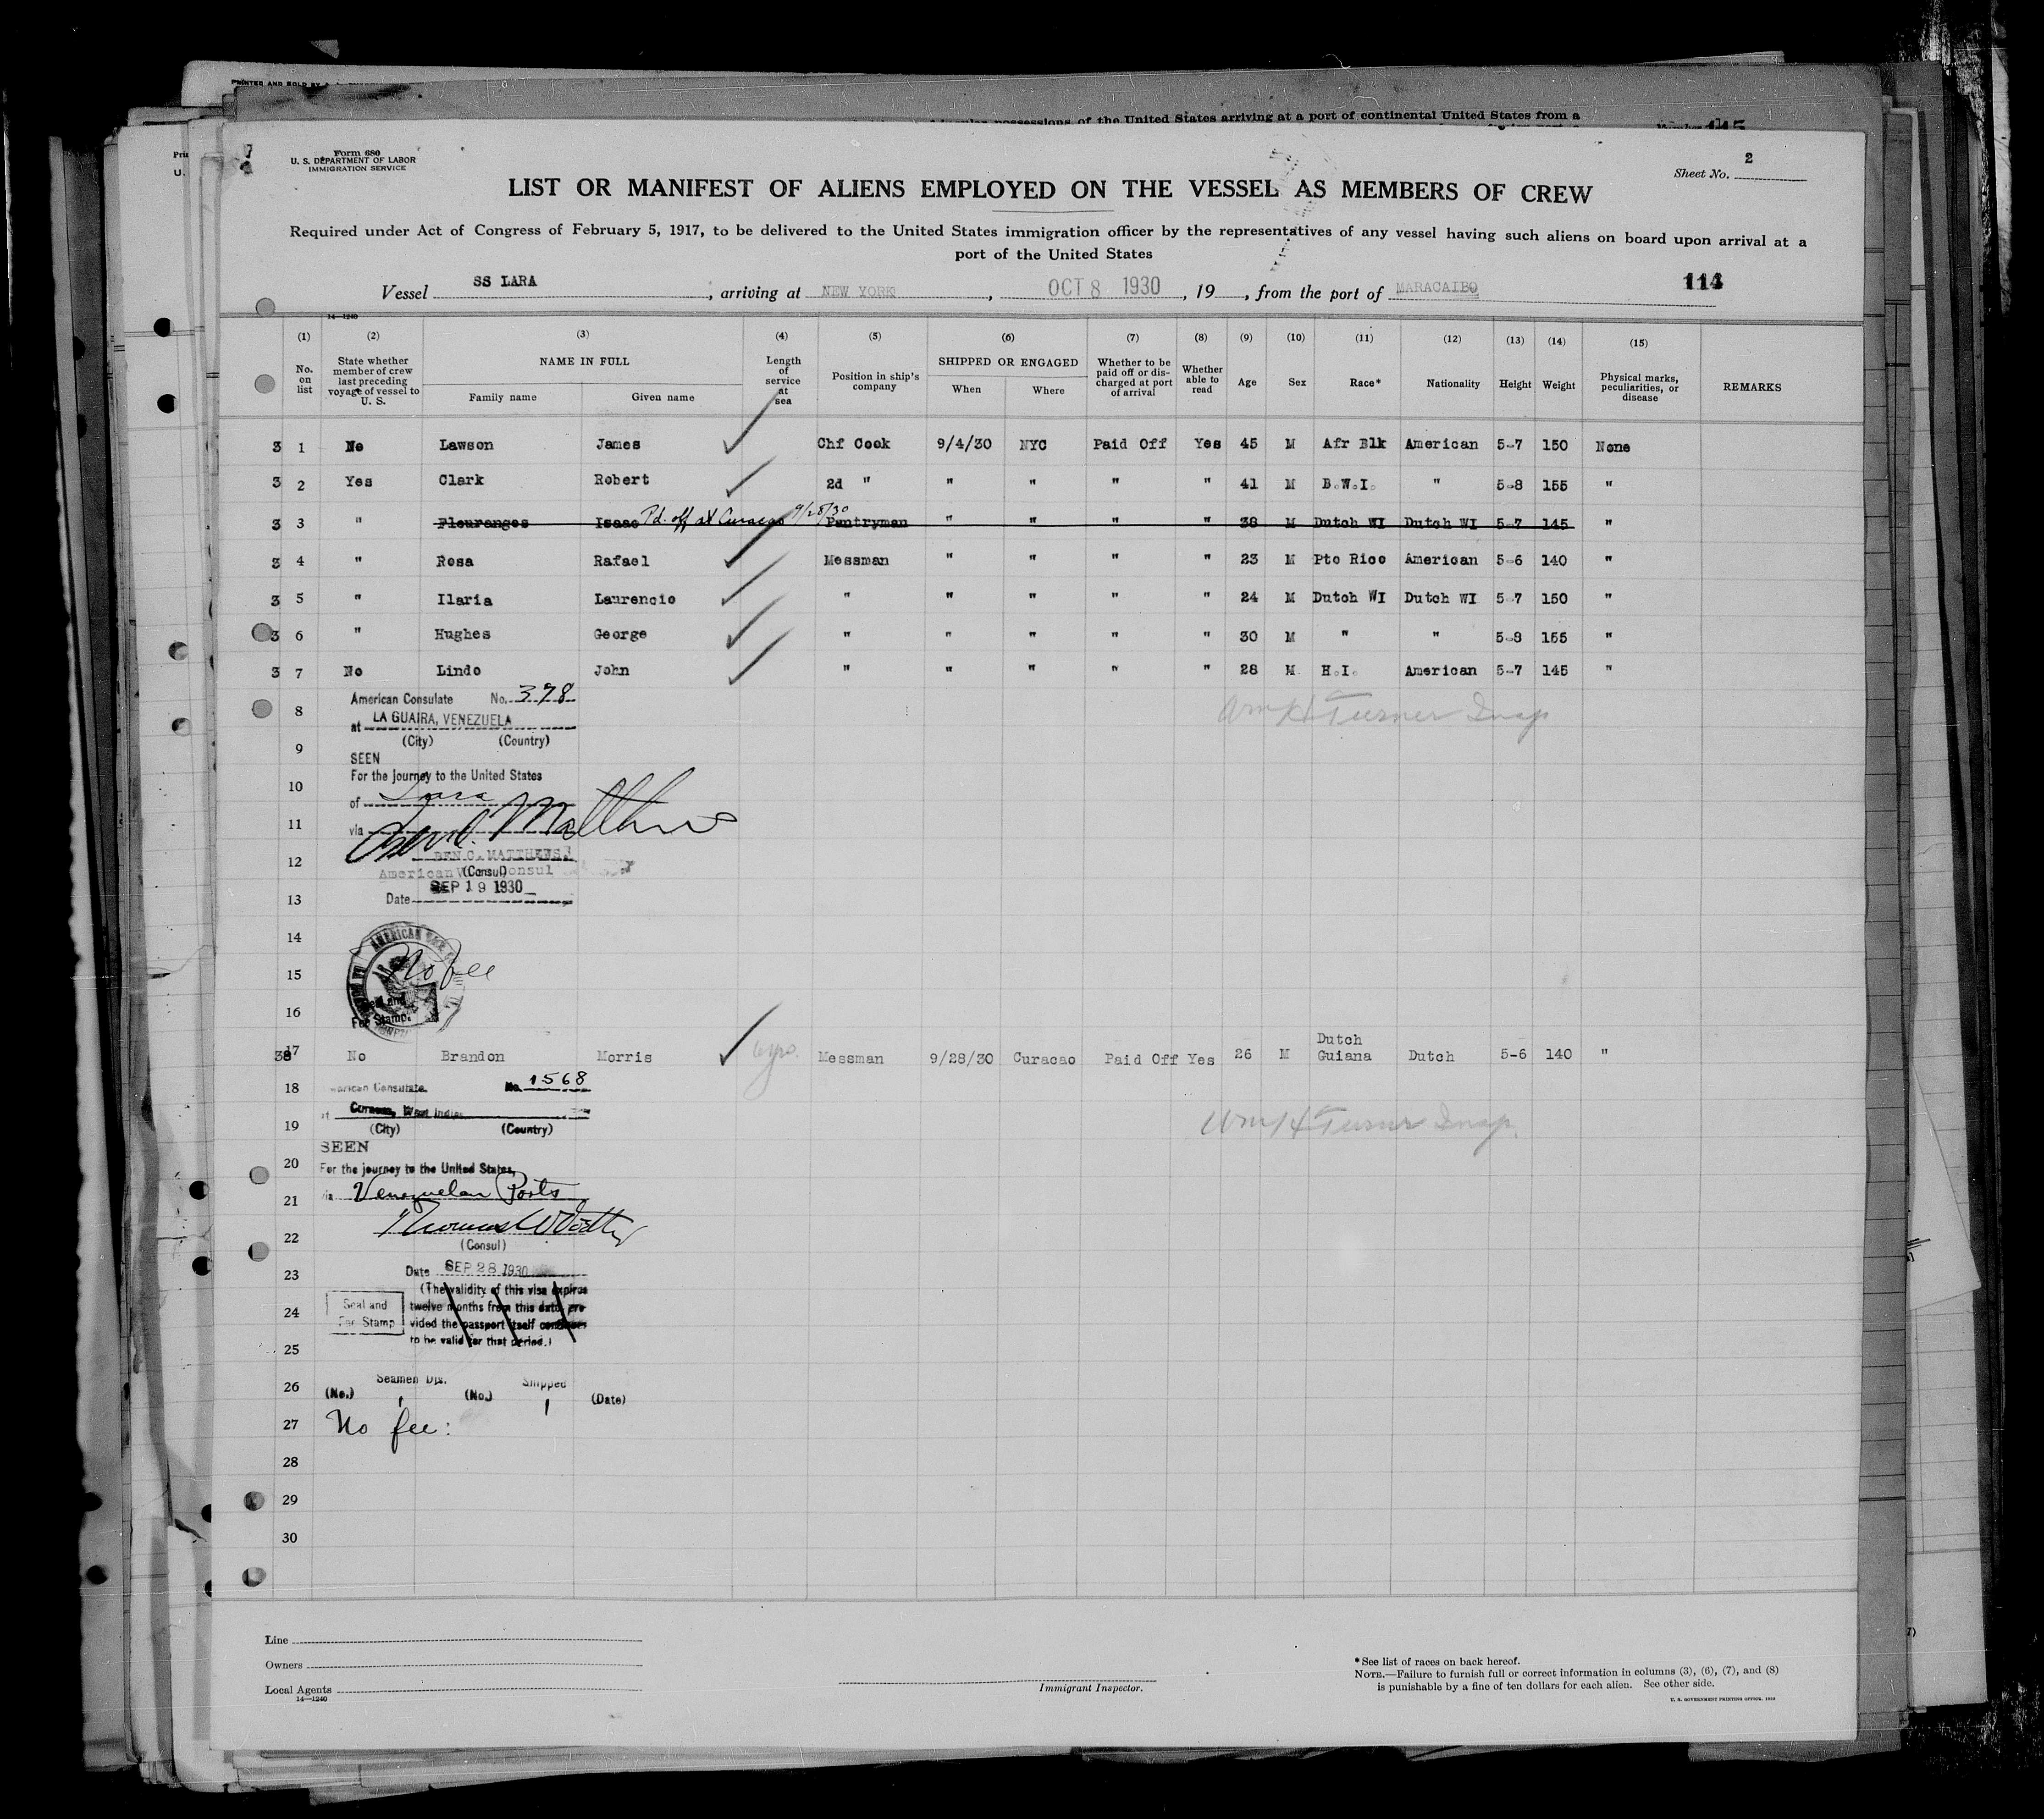 PRINTED AND SOLD BY
possessions of the United States arriving at a port of continental United States from a
Form 680
U. S. DEPARTMENT OF LABOR
IMMIGRATION SERVICE
Sheet No. 2
LIST OR MANIFEST OF ALIENS EMPLOYED ON THE VESSEL AS MEMBERS OF CREW
Required under Act of Congress of February 5, 1917, to be delivered to the United States immigration officer by the representatives of any vessel having such aliens on board upon arrival at a
port of the United States
Vessel SS LARA, arriving at NEW YORK, OCT 8 1930, 19, from the port of MARACAIBO 114
14—1240
(1) (2) (3) (4) (5) (6) (7) (8) (9) (10) (11) (12) (13) (14) (15)
No. on list State whether member of crew last preceding voyage of vessel to U. S. NAME IN FULL Family name Given name Length of service at sea Position in ship's company SHIPPED OR ENGAGED When Where Whether to be paid off or discharged at port of arrival Whether able to read Age Sex Race* Nationality Height Weight Physical marks, peculiarities, or disease REMARKS
3 1 No Lawson James Chf Cook 9/4/30 NYC Paid Off Yes 45 M Afr Blk American 5-7 150 None
3 2 Yes Clark Robert 2d " " " " " 41 M B.W.I. " 5-8 155 "
3 3 " Fleuranges Isaac Pd. off at Curacao 9/28/30 Pantryman " " " " 38 M Dutch WI Dutch WI 5-7 145 "
3 4 " Rosa Rafael Messman " " " " 23 M Pto Rico American 5-6 140 "
3 5 " Ilaria Laurencio " " " " " 24 M Dutch WI Dutch WI 5-7 150 "
3 6 " Hughes George " " " " " 30 M " " 5-8 155 "
3 7 No Lindo John " " " " " 28 M H.I. American 5-7 145 "
American Consulate No. 378
8 Wm H Turner Insp
at LA GUAIRA, VENEZUELA
(City) (Country)
9
SEEN
For the journey to the United States
10
of Lara
11
via
Ben C. Matthews
BEN C. MATTHEWS
12
American Vice Consul
(Consul)
SEP 19 1930
13 Date
14
No fee
15
Seal and
16
Fee Stamp.
38 17 No Brandon Morris 6 yrs. Messman 9/28/30 Curacao Paid Off Yes 26 M Dutch Guiana Dutch 5-6 140 "
18 American Consulate No. 1568
at Curacao, West Indies
19 (City) (Country) Wm H Turner Insp.
SEEN
20 For the journey to the United States,
21 via Venezuelan Ports
22
(Consul)
23 Date SEP 28 1930
(The validity of this visa expires
24 Seal and Fee Stamp twelve months from this date, pro-
vided the passport itself continues
to be valid for that period.)
25
26 Seamen Div. Shipped
(No.) (No.) (Date)
27 No fee:
28
29
30
Line
Owners
Local Agents
14—1240
Immigrant Inspector.
*See list of races on back hereof.
NOTE.—Failure to furnish full or correct information in columns (3), (6), (7), and (8)
is punishable by a fine of ten dollars for each alien. See other side.
U. S. GOVERNMENT PRINTING OFFICE